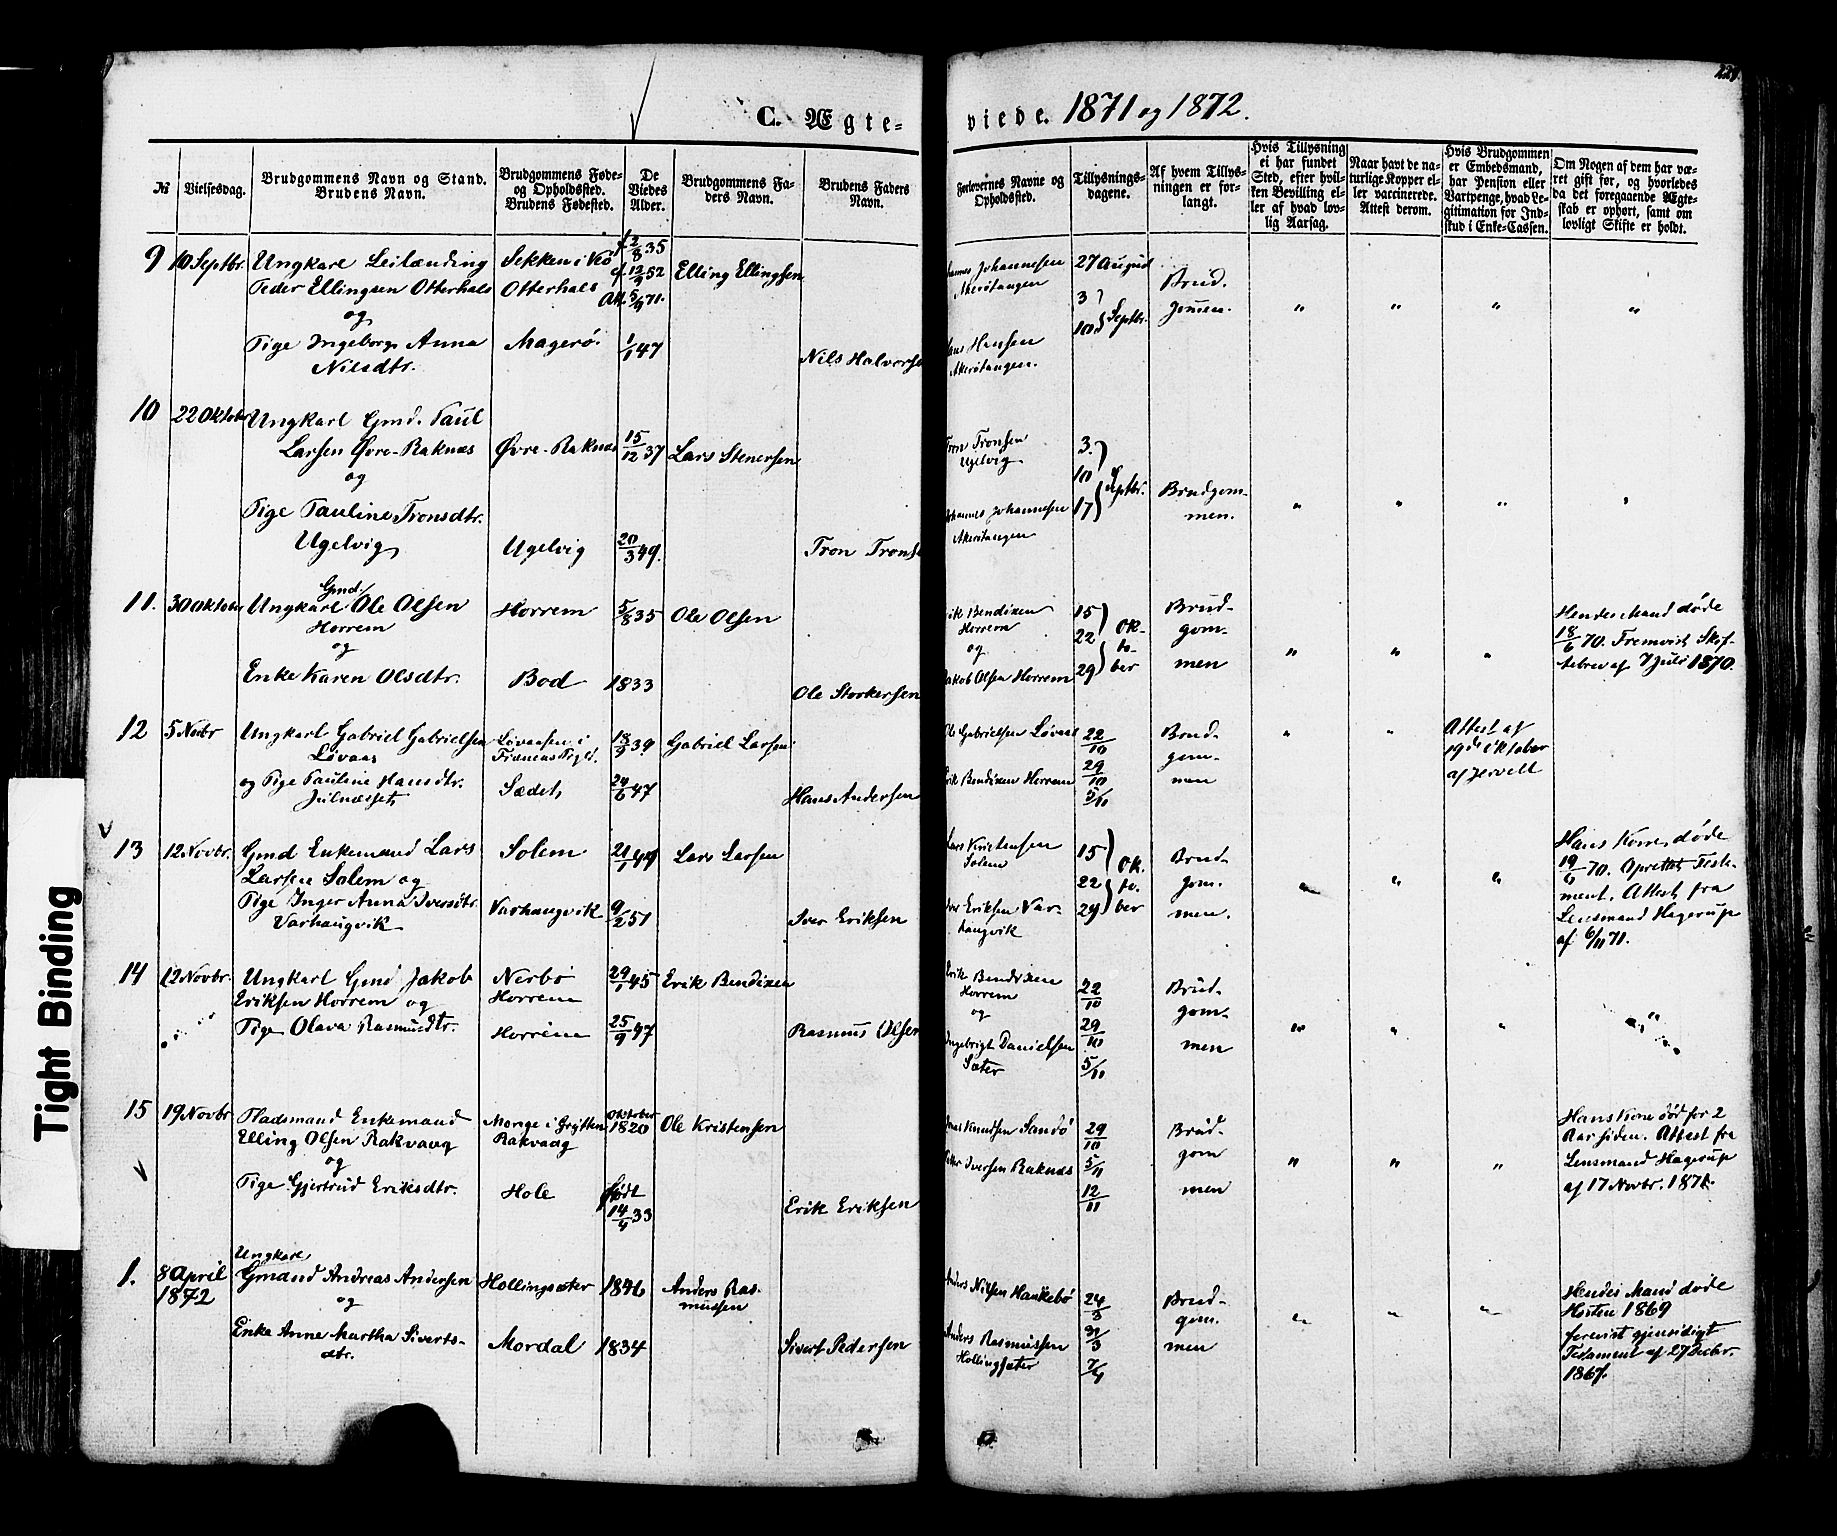 C. Ægte-
viede. 1871 og 1872.
№
Vielsesdag.
Brudgommens Navn og Stand.
Brudens Navn.
Brudgommens Føde-
og Opholdssted.
Brudens Fødested.
De
Viedes
Alder.
Brudgommens Fa-
ders Navn.
Brudens Faders
Navn.
Forlovernes Navne og
Opholdssted.
Tillysnings-
dagene.
Af hvem Tillys-
ningen er for-
langt.
Hvis Tillysning
ei har fundet
Sted, efter hvil-
ken Bevilling el-
ler af hvad lov-
lig Aarsag.
Naar havt de na-
turlige Kopper el-
ler vaccinerede.
Attest derom.
Hvis Brudgommen
er Embedsmand,
har Pension eller
Vartpenge, hvad Le-
gitimation for Ind-
skud i Enke-Cassen.
Om Nogen af dem har væ-
ret gift før, og hvorledes
da det foregaaende Ægte-
skab er ophørt, samt om
lovligt Skifte er holdt.
9 10 Septbr. Ungkarl Leilænding
Peder Ellingsen Otterhals
og
Pige Ingeborg Anna
Nilsdtr.
Sekken i
Otterhals
Magerø.
f. 2/8 35
5/9 71.
1/1 47
Elling Ellingsen
Nils Halvorse
Johannesen
Akerøtangen
Hansen
Akerøtangen.
27 August
3
10 Septbr.
Brud.
" " " "
10 22 Oktober Ungkarl Gmd. Paul
Larsen Øvre-Raknæs
og
Pige Pauline Tronsdtr.
Ugelvig
Øvre-Raknæs
Ugelvig
15/12 37
20/3 49.
Lars Stenersen
Tron Tronse
Tron Tronsen
Ugelvig
Johannes Johannesen
Akerøtangen
3.
10
17 Septbr.
Brudgom-
men.
" " " "
11. 30 Oktober Gmd.
Ungkarl Ole Olsen
Horrem
og
Enke Karen Olsdtr.
Horrem
Bod
5/8 35
1833
Ole Olsen
Ole Storkersen
Erik Bendixen
Horrem
og
Jakob Olsen Horrem
15
22
29
Ok-
to-
ber
Brud-
gom-
men
" " "
Hendes Mand døde
18/6 70. Fremvist Skif-
tebrev af 7 Juli 1870.
12 5 Novbr Ungkarl Gabriel Gabrielsen
Løvaas
og Pige Pauline Hansdtr.
Julnæsset
Løvaasen i
Sædet,
13/9 39
24/6 47
Gabriel Larsen
Hans Andersen
Ole Gabrielsen Løvaas
Erik Bendixen Horrem
22/10
29/10
5/11
Brud-
gom-
men
" "
Attest af
19de Oktober
af Jervell
13 12 Novbr. Gmd Enkemand Lars
Larsen Solem og
Pige Inger Anna Iversdtr.
Varhaugvik
Solem
Varhaugvik
21/1 44
9/2 51
Lars Larsen
Iver Eriksen
Lars Kristensen
Solem
Iver Eriksen Var-
haugvik
15
22
29
Ok.
to.
ber
Brud-
gom.
men.
" " "
Hans Kone døde
19/6 70. Oprettet Testa-
ment. Attest fra
Lensmand Hagerup
af 6/11 71.
14 12 Novbr. Ungkarl Gmd Jakob
Eriksen Horrem og
Pige Olava Rasmusdtr.
Nerbø
Horrem
Horrem
29/1 45
25/9 47
Erik Bendixen
Rasmus Olsen
Erik Bendixen
Horrem
og
Ingebrigt Danielsen
Sæter
22/10
29/10
5/11
Brud-
gom-
men
" " " "
15 19 Novbr Pladsmand Enkemand
Elling Olsen Rakvaag
og
Pige Gjertrud Eriksdtr.
Monge i Grytten
Rakvaag
Hole
Oktober
1820
født
14/4 33
Ole Kristensen
Erik Eriksen
Knudsen Sandø
Peter Iversen Raknæs
29/10
5/11
12/11
Brud-
gom
men
" " "
Hans Kone død for 2
Aar siden. Attest fra
Lensmand Hagerup
af 17 Novbr. 1871.
1. 8 April
1872
Ungkarl
Gmand Andreas Andersen
og
Enke Anne Martha Siverts-
dtr.
Hollingsæter
Mordal
1846
1834
Anders Ras-
mussen
Sivert Pedersen
Anders Nilsen Haukebø
Anders Rasmussen
Hollingsæter
24/3
31/3
7/4
Brud-
gom.
men
" " "
Hendes Mand døde
Høsten 1869
forevist gjensidigt
Testament af 27 Decbr.
1867.
Tight Binding